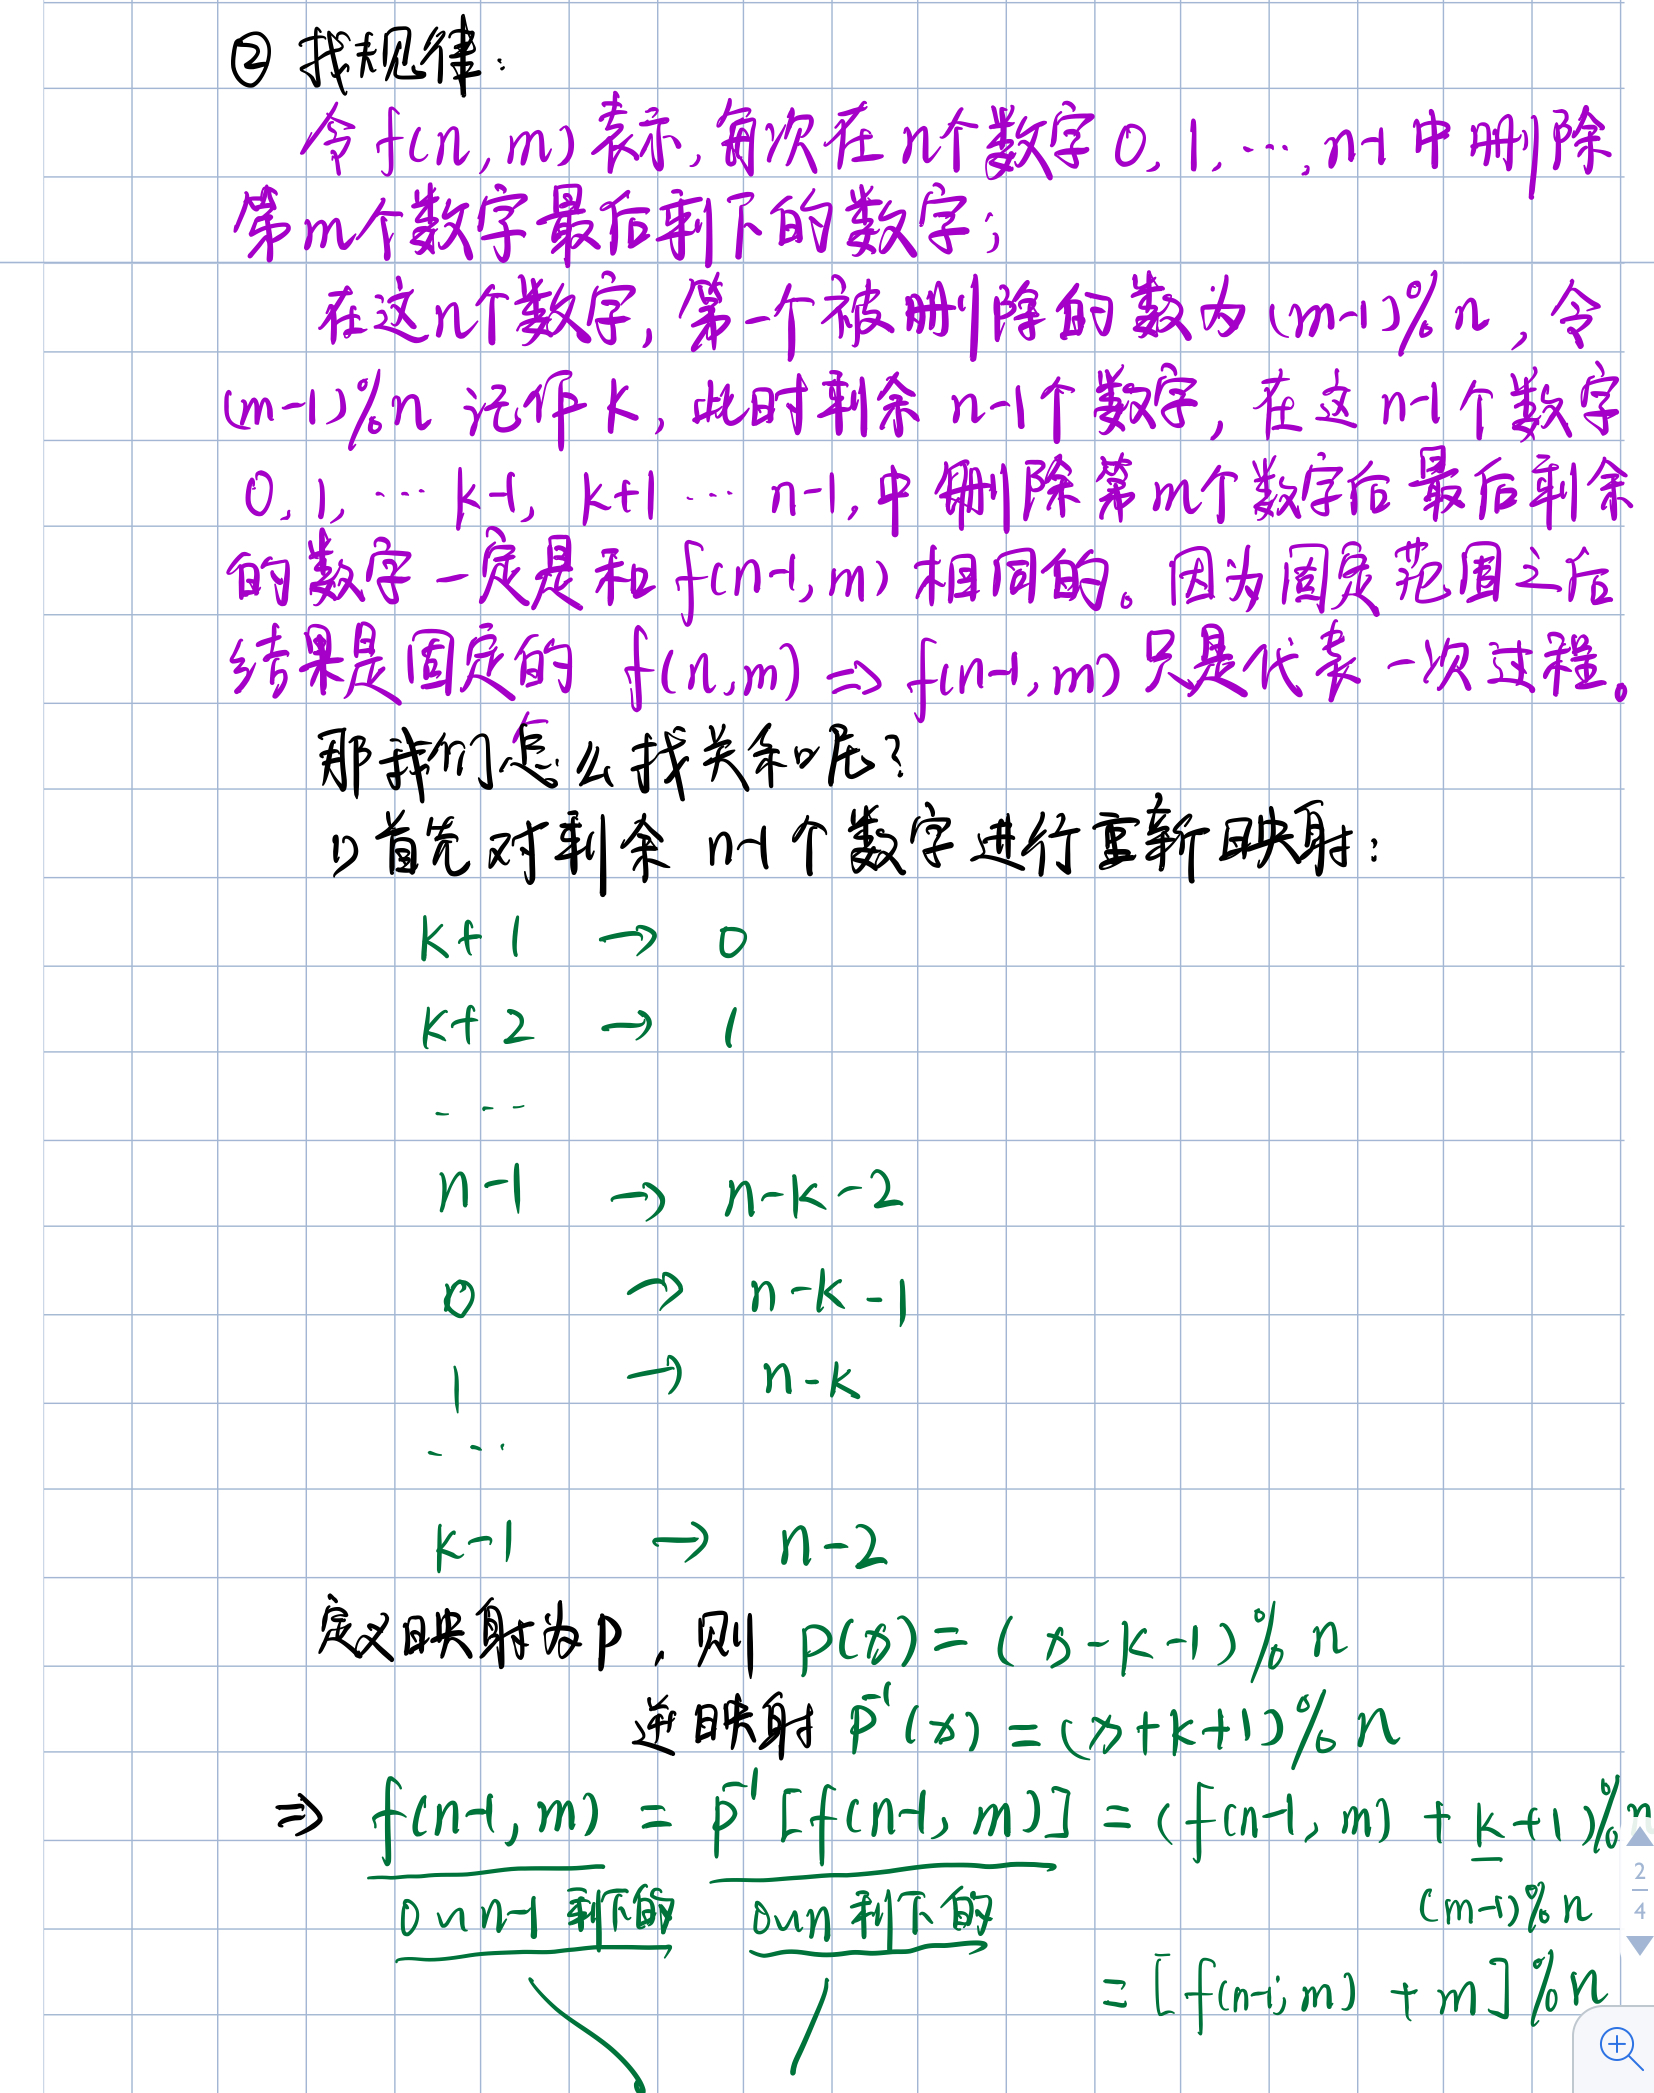 ② 找规律:
令 f(n, m) 表示, 每次在 n个数字 0, 1, ..., n-1 中 删除
第m个数字最后剩下的数字;
在这n个数字, 第一个被删除的数为 (m-1)%n, 令
(m-1)%n 记作 k, 此时剩余 n-1个数字, 在这 n-1个数字
0, 1, ... k-1, k+1 ... n-1, 中删除第m个数字后最后剩余
的数字一定是和 f(n-1, m) 相同的。因为固定范围之后
结果是固定的 f(n, m) => f(n-1, m) 只是代表一次过程。
那我们怎么找关系呢?
1) 首先对剩余 n-1个数字进行重新映射:
k+1 → 0
k+2 → 1
...
n-1 → n-k-2
0 → n-k-1
1 → n-k
...
k-1 → n-2
定义映射为p, 则 p(x) = (x-k-1)% n
逆映射 p⁻¹(x) = (x+k+1)% n
=> f(n-1, m) = p⁻¹[f(n-1, m)] = (f(n-1, m) + k+1)%n
0~n-1 剩下的 0~n 剩下的 (m-1)%n
= [f(n-1, m) + m]%n
2
4